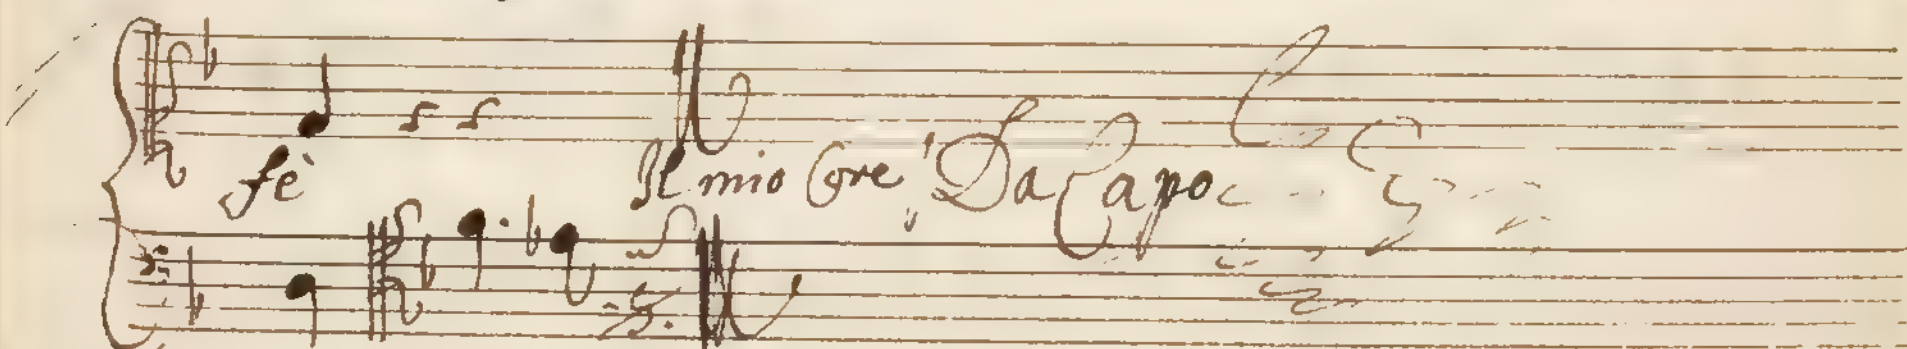 fè Il mio Core Da Capo